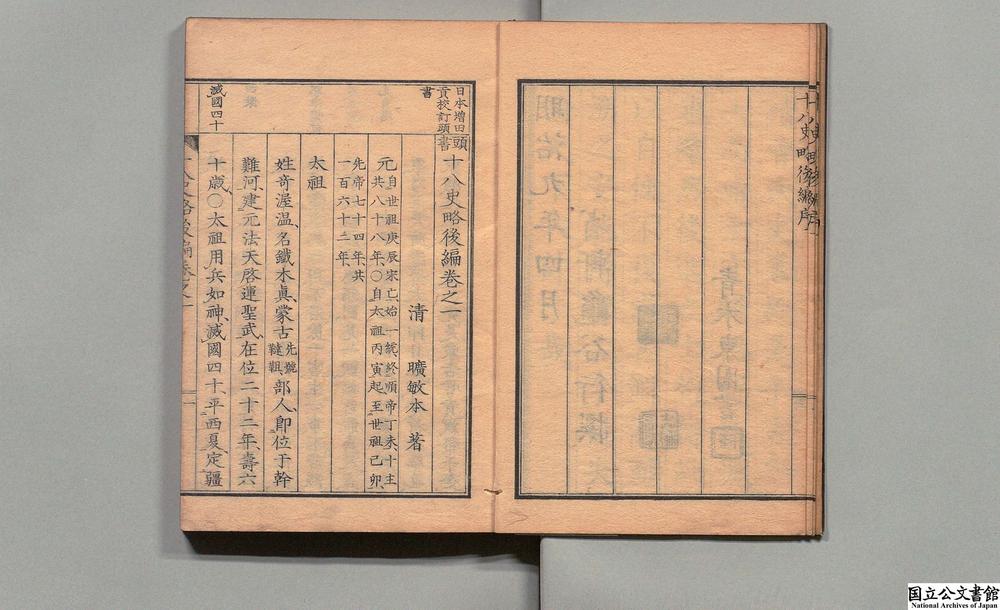 十八史略後編序
日本增田
貢校訂頭
書
頭書十八史略後編卷之一
清　曠敏本　著
元自世祖庚辰宋亡、始一統、終順帝丁未、十主
共八十八年、〇自太祖丙寅起、至世祖己卯、
先帝七十四年、共
一百六十二年、
太祖
姓奇渥溫、名鐵木眞、蒙古先號韃靼、部人、卽位于幹
難河、建元法天啓運聖武、在位二十二年、壽六
滅國四十
十歲、〇太祖用兵如神、滅國四十、平西夏、定疆
十八史略後編卷之一
国立公文書館
National Archives of Japan